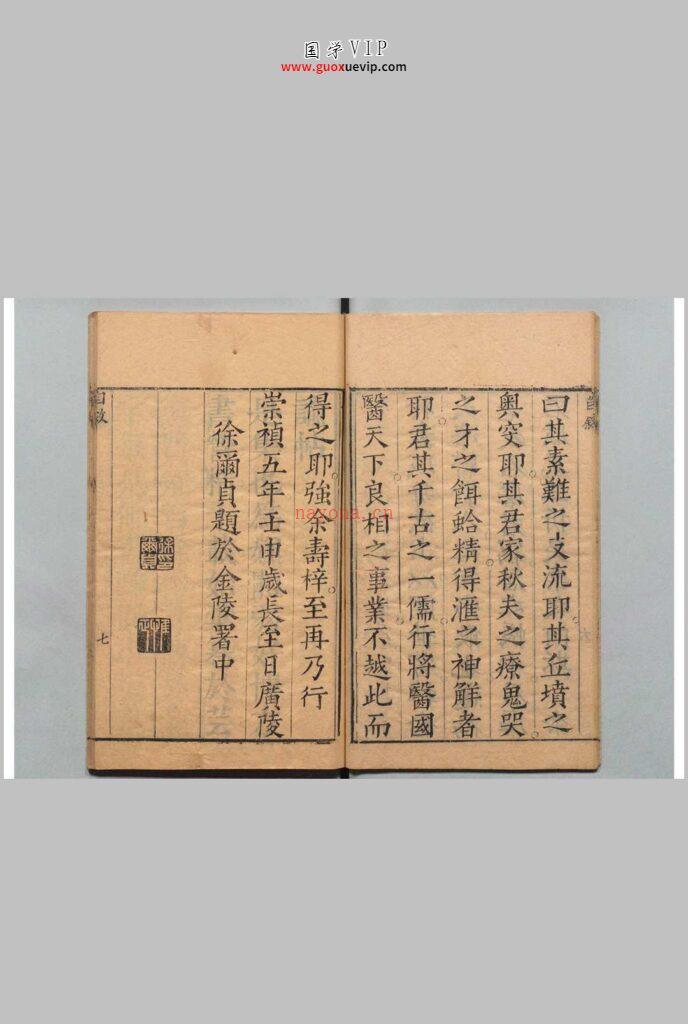 国学VIP
www.guoxuevip.com
曰其素難之支流耶其丘墳之
奥窔耶其君家秋夫之療鬼哭
之才之餌蛤精得滙之神解者
耶君其千古之一儒行將醫國
醫天下良相之事業不越此而
得之耶強余壽梓至再乃行
崇禎五年壬申歲長至日廣陵
徐爾貞題於金陵署中
七
naxona.cn